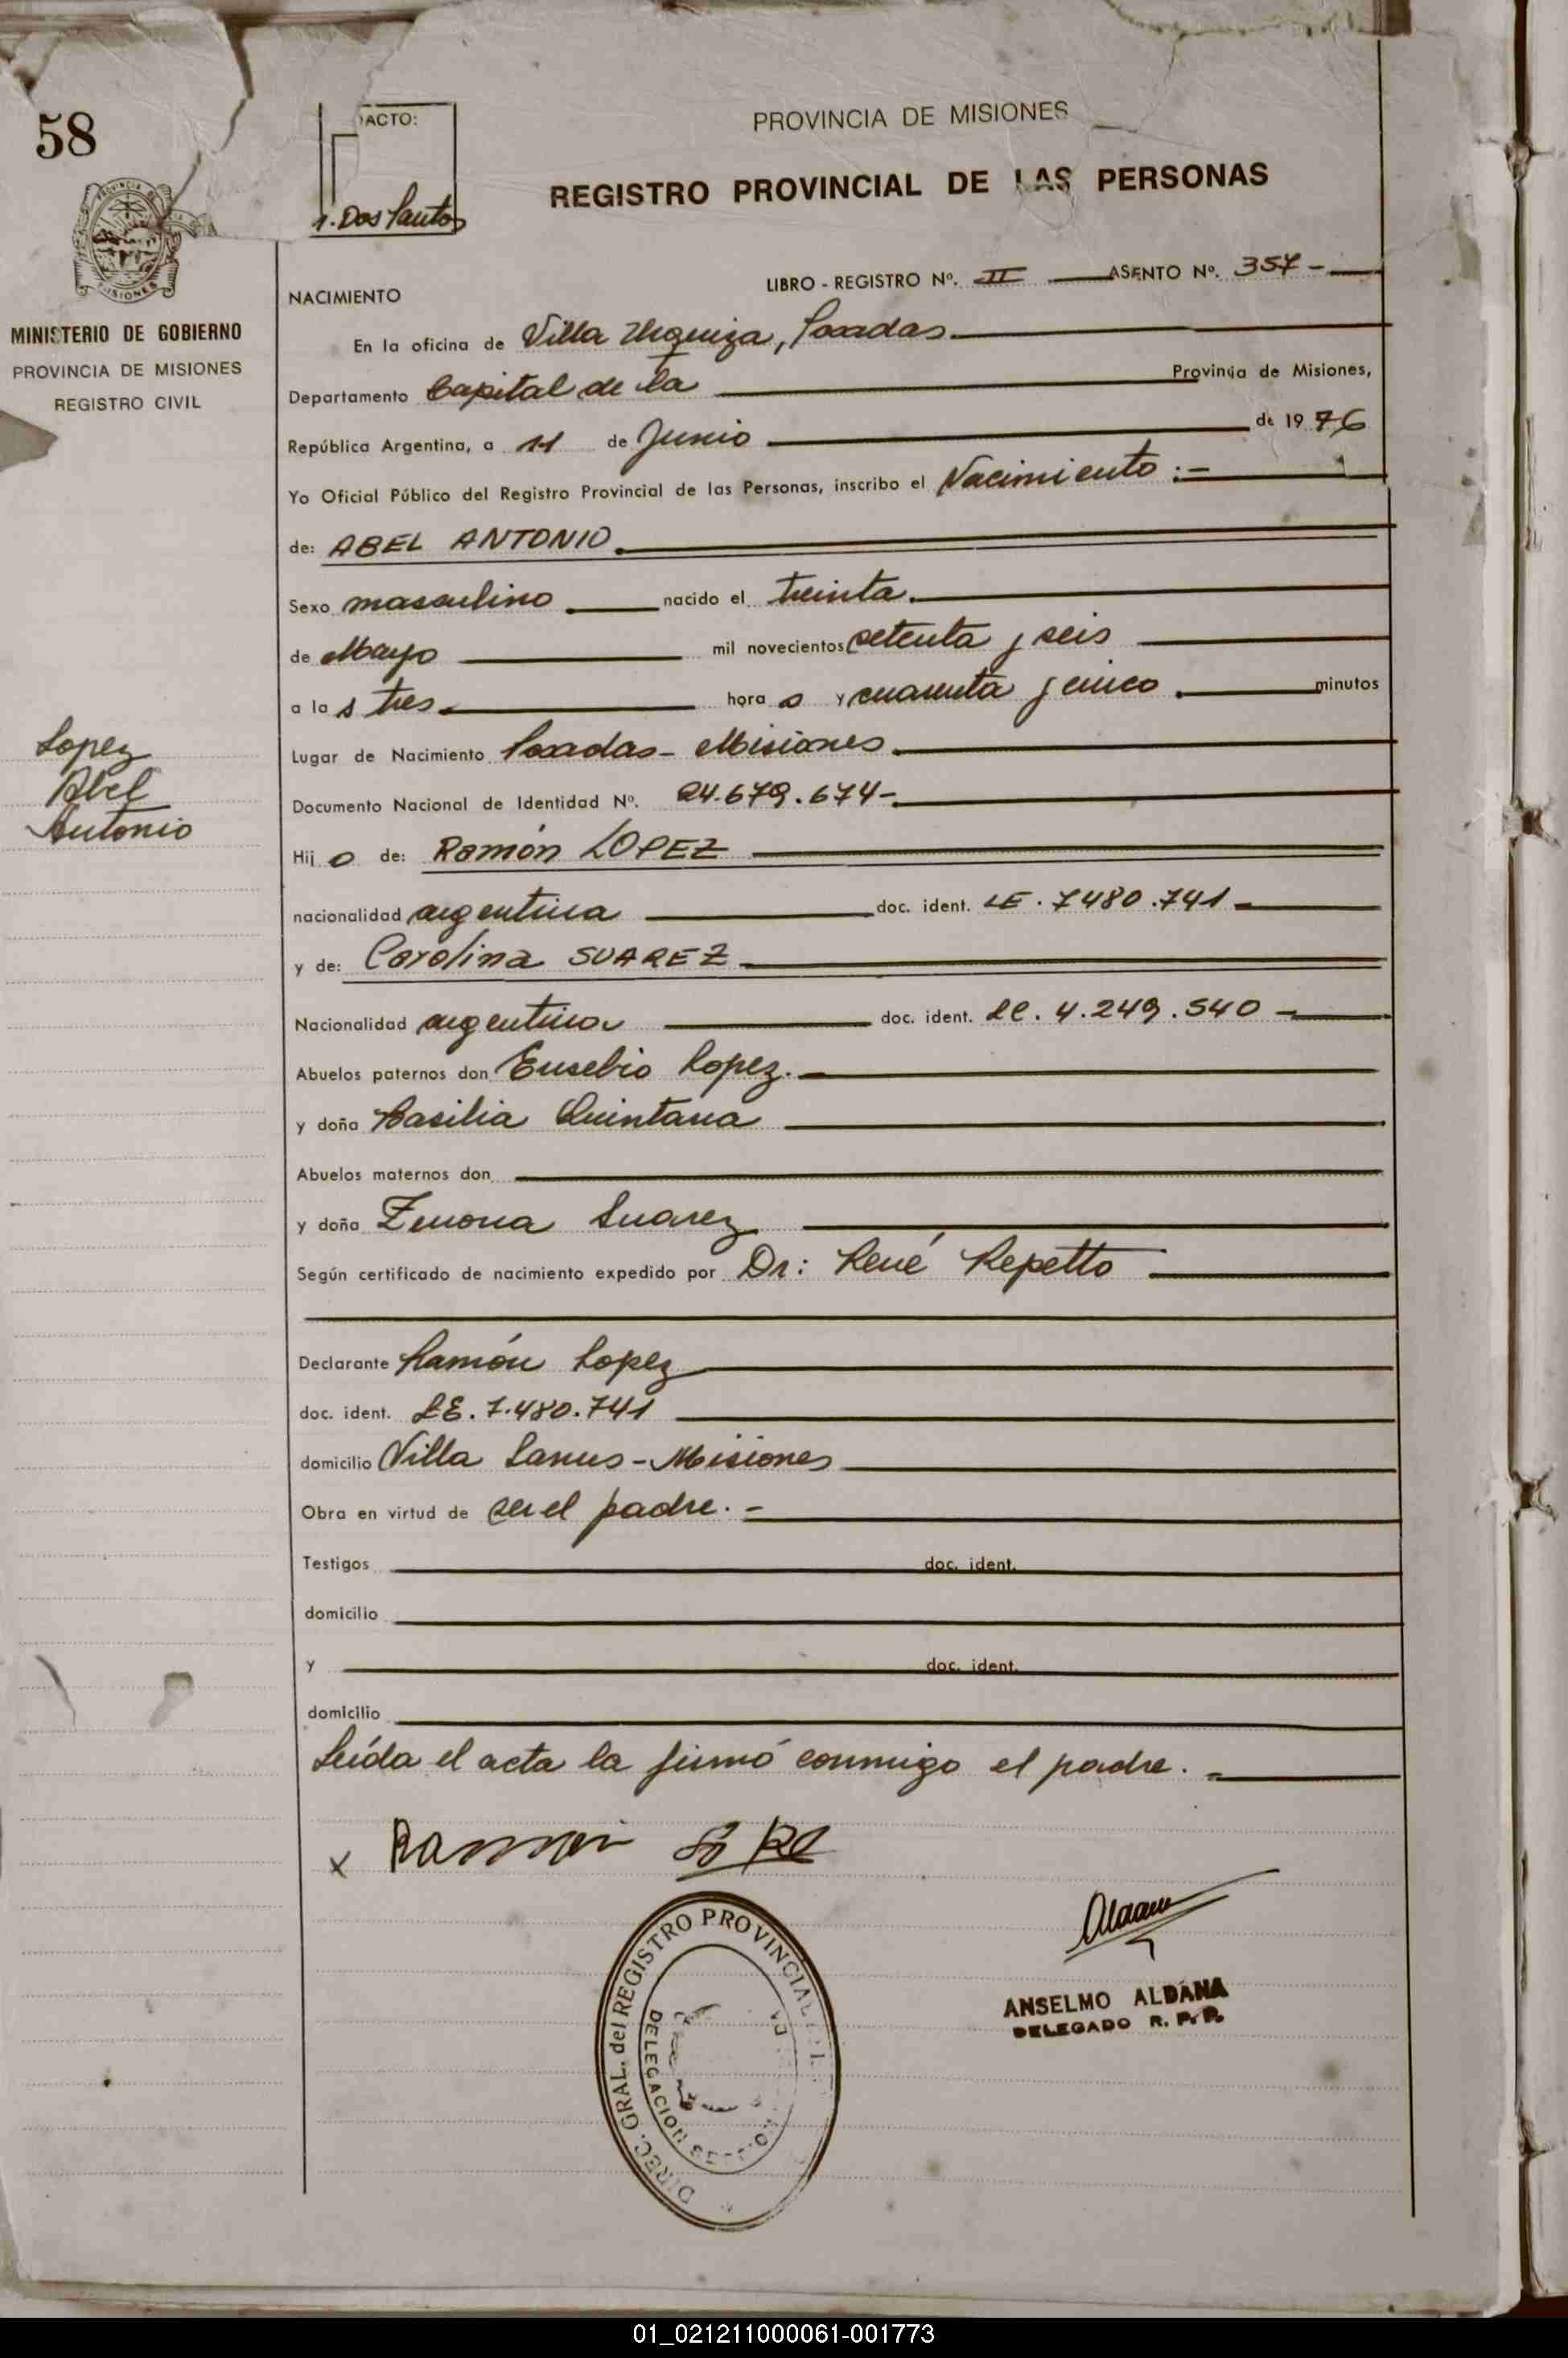 58
ACTO:
1. Dos Santos
PROVINCIA DE MISIONES
REGISTRO PROVINCIAL DE LAS PERSONAS
MINISTERIO DE GOBIERNO
PROVINCIA DE MISIONES
REGISTRO CIVIL
NACIMIENTO
LIBRO - REGISTRO Nº. II ASENTO Nº. 357-
En la oficina de Villa Urquiza, Posadas
Departamento Capital de la Provincia de Misiones,
República Argentina, a 11 de Junio de 1976
Yo Oficial Público del Registro Provincial de las Personas, inscribo el Nacimiento:-
de: ABEL ANTONIO
Sexo masculino nacido el treinta.
de Mayo mil novecientos setenta y seis
a las tres hora s y cuarenta y cinco. minutos
Lugar de Nacimiento Posadas - Misiones
Lopez
Abel
Antonio
Documento Nacional de Identidad Nº. 24.679.674-
Hijo de: Ramón LOPEZ
nacionalidad argentina doc. ident. LE. 7480.741-
y de: Carolina SUAREZ
Nacionalidad argentina doc. ident. LC. 4.249.540-
Abuelos paternos don Eusebio Lopez.-
y doña Basilia Quintana
Abuelos maternos don
y doña Zenona Suarez
Según certificado de nacimiento expedido por Dr: René Repetto
Declarante Ramón Lopez
doc. ident. LE. 7.480.741
domicilio Villa Lanus - Misiones
Obra en virtud de ser el padre.-
Testigos doc. ident.
domicilio
y doc. ident.
domicilio
Leída el acta la firmó conmigo el padre.-
x Ramon
DIREC. GRAL. del REGISTRO PROVINCIAL
DELEGACION
ANSELMO ALDANA
DELEGADO R. P. P.
01_021211000061-001773